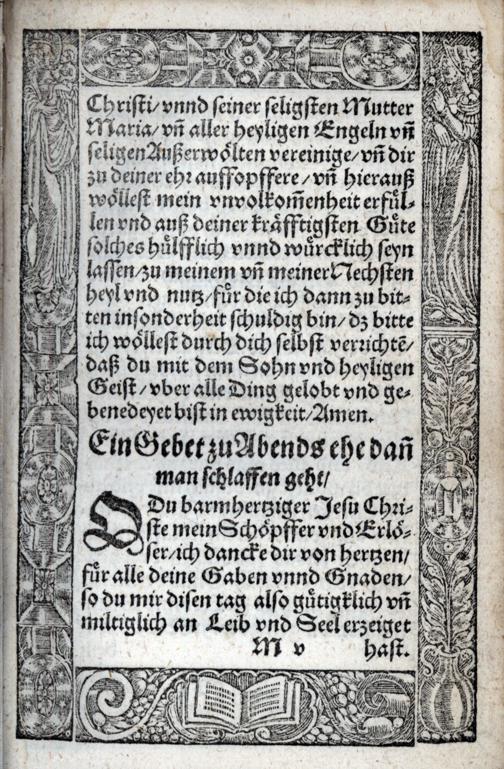 Christi/ vnnd seiner seligsten Mutter
Maria/ vñ aller heyligen Engeln vñ
seligen Außerwölten vereinige/ vñ dir
zu deiner ehr auffopffere/ vñ hierauß
wöllest mein vnvolkom̃enheit erfül-
len vnd auß deiner kräfftigsten Güte
solches hülfflich vnnd würcklich seyn
lassen/ zu meinem vñ meiner Nechsten
heyl vnd nutz/ für die ich dann zu bit-
ten insonderheit schuldig bin/ dz bitte
ich wöllest durch dich selbst verrichtẽ/
daß du mit dem Sohn vnd heyligen
Geist/ vber alle Ding gelobt vnd ge-
benedeyet bist in ewigkeit/ Amen.
Ein Gebet zu Abends ehe dañ
man schlaffen geht/
O Du barmhertziger Jesu Chri-
ste mein Schöpffer vnd Erlö-
ser/ ich dancke dir von hertzen/
für alle deine Gaben vnnd Gnaden/
so du mir disen tag also gütigklich vñ
miltiglich an Leib vnd Seel erzeiget
M v hast.